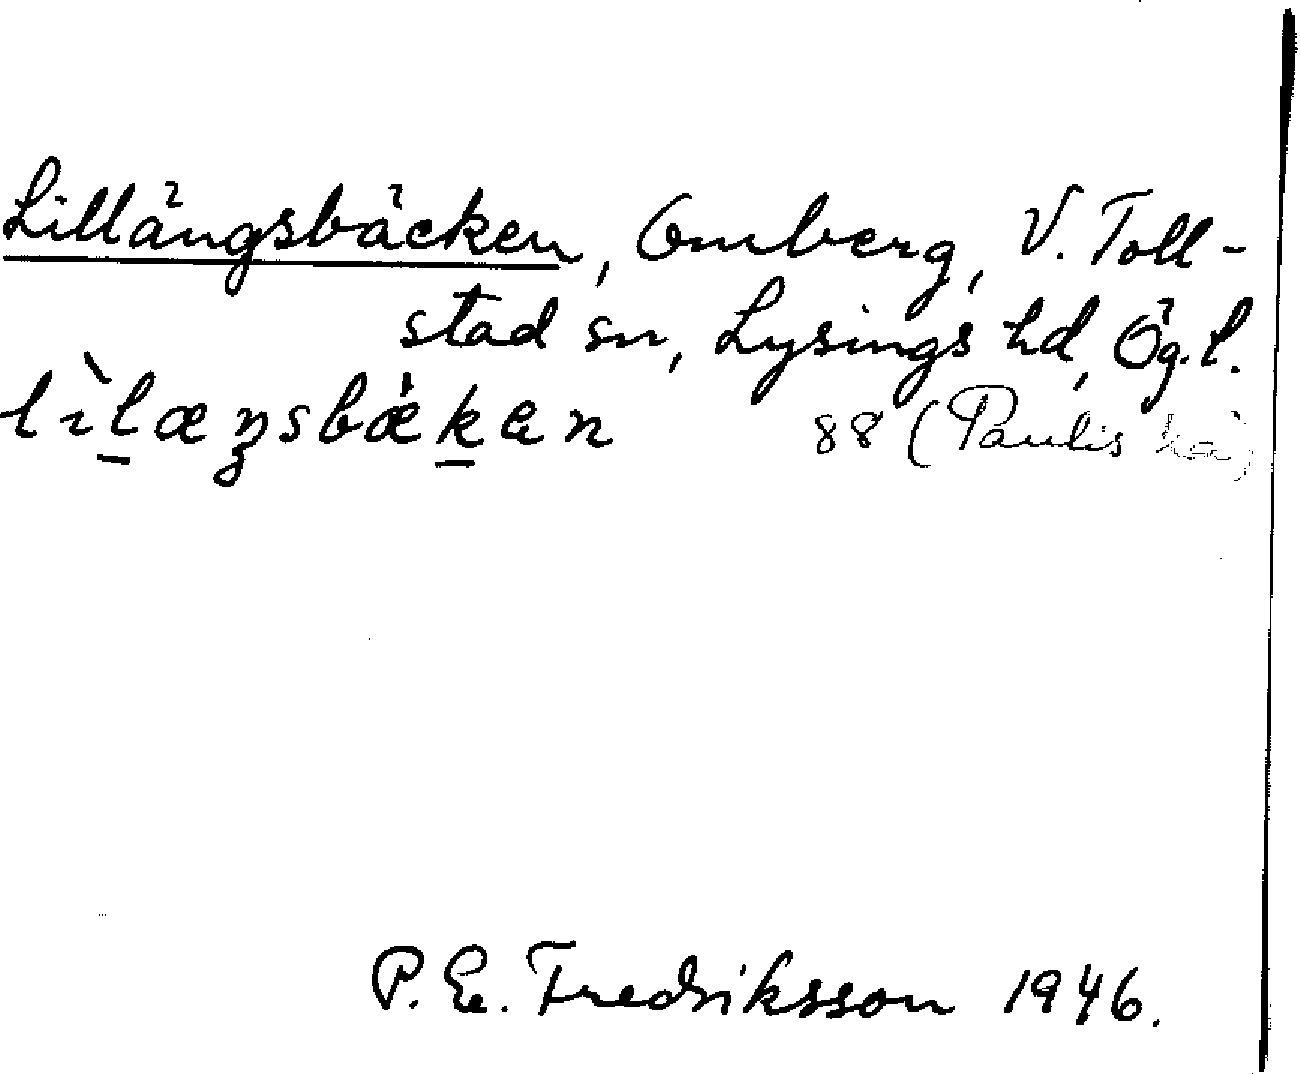 Lillängsbäcken, Omberg, V. Toll-
stad sn, Lysings hd, Ög. l.
lìlæŋsbækən 88 (Paulis
P. E. Fredriksson 1946.